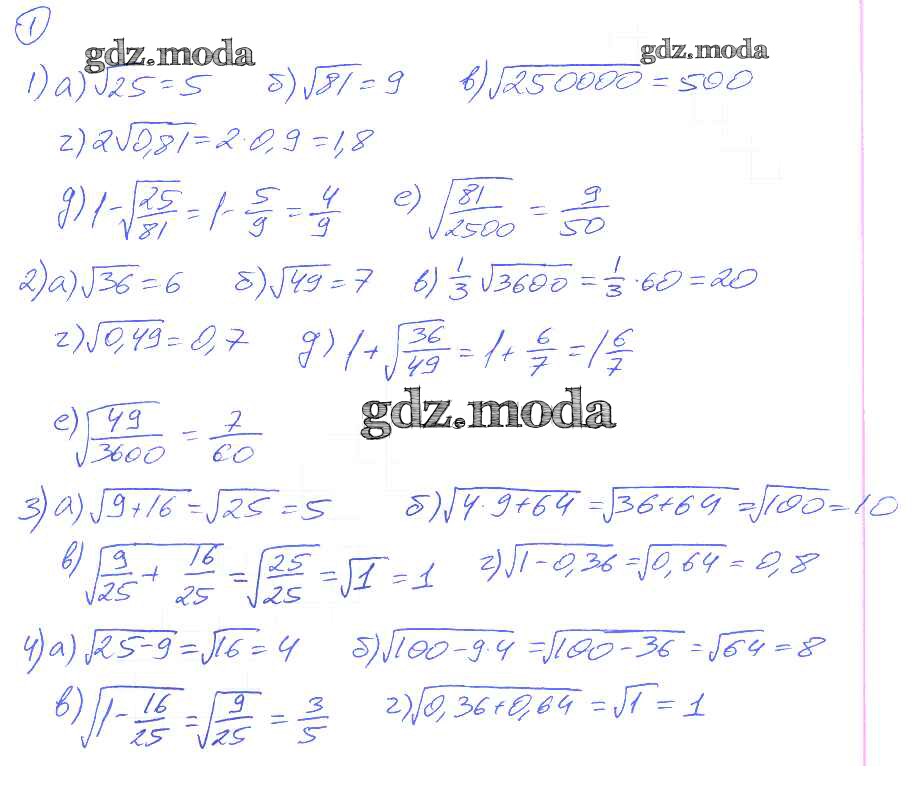 1
gdz.moda gdz.moda
1) а) √25 = 5 б) √81 = 9 в) √250000 = 500
г) 2√0,81 = 2·0,9 = 1,8
д) 1 - √(25/81) = 1 - 5/9 = 4/9 е) √(81/2500) = 9/50
2) а) √36 = 6 б) √49 = 7 в) 1/3 √3600 = 1/3 · 60 = 20
г) √0,49 = 0,7 д) 1 + √(36/49) = 1 + 6/7 = 1 6/7
gdz.moda
е) √(49/3600) = 7/60
3) а) √(9+16) = √25 = 5 б) √(4·9+64) = √(36+64) = √100 = 10
в) √(9/25 + 16/25) = √(25/25) = √1 = 1 г) √(1-0,36) = √0,64 = 0,8
4) а) √(25-9) = √16 = 4 б) √(100-9·4) = √(100-36) = √64 = 8
в) √(1 - 16/25) = √(9/25) = 3/5 г) √(0,36+0,64) = √1 = 1